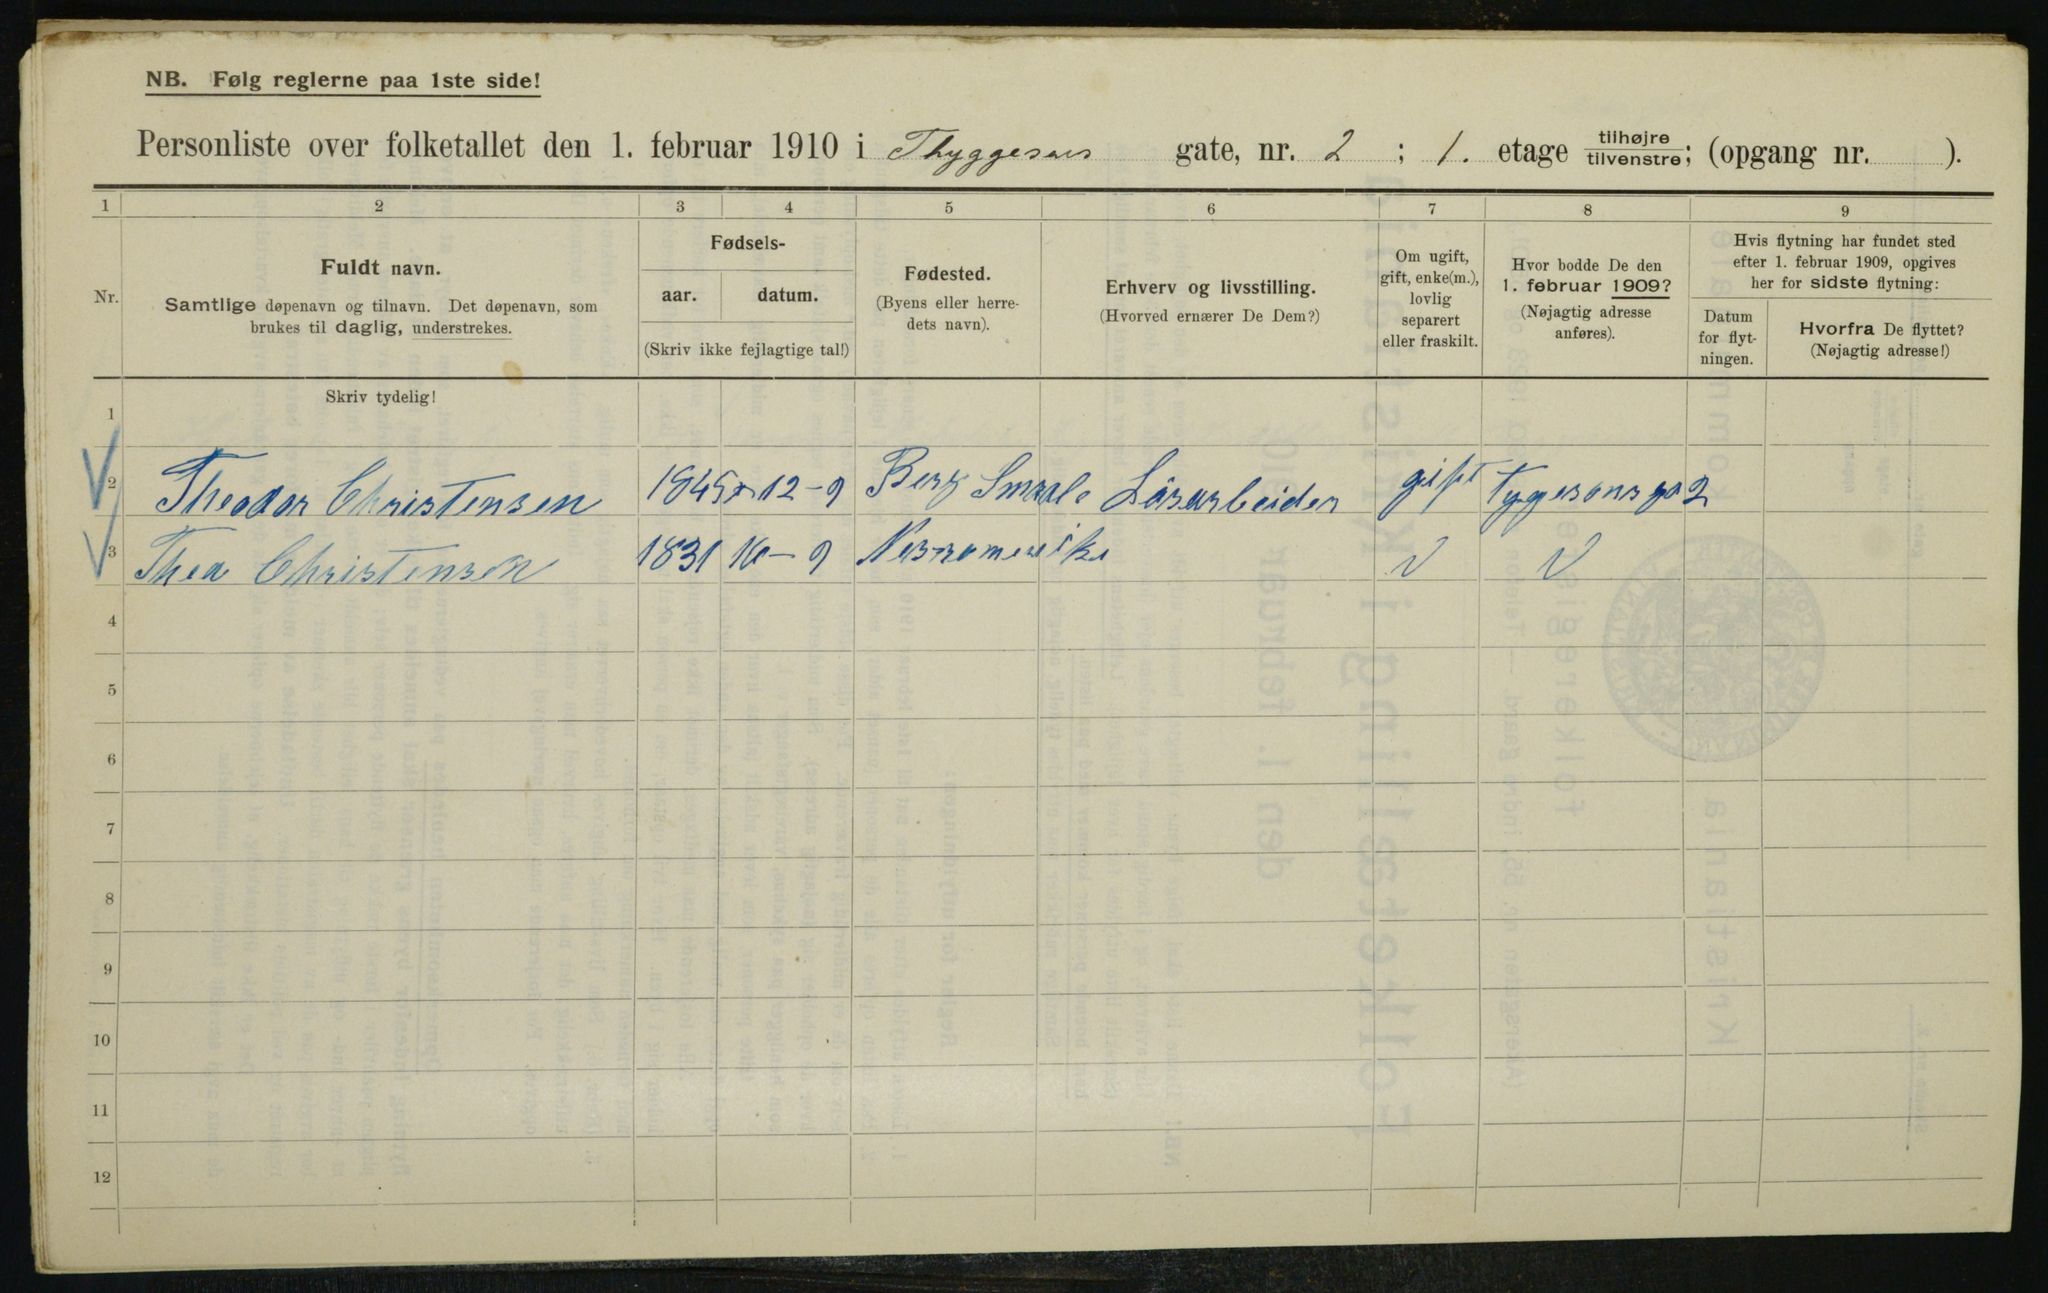 NB. Følg reglerne paa 1ste side!
Personliste over folketallet den 1. februar 1910 i Thyggesens gate, nr. 2 ; 1. etage tilhøjre/tilvenstre; (opgang nr. ).
1 2 3 4 5 6 7 8 9
Nr.
Fuldt navn.
Samtlige døpenavn og tilnavn. Det døpenavn, som
brukes til daglig, understrekes.
Fødsels-
aar. datum.
(Skriv ikke fejlagtige tal!)
Fødested.
(Byens eller herre-
dets navn).
Erhverv og livsstilling.
(Hvorved ernærer De Dem?)
Om ugift,
gift, enke(m.),
lovlig
separert
eller fraskilt.
Hvor bodde De den
1. februar 1909?
(Nøjagtig adresse
anføres).
Hvis flytning har fundet sted
efter 1. februar 1909, opgives
her for sidste flytning:
Datum
for flyt-
ningen.
Hvorfra De flyttet?
(Nøjagtig adresse!)
Skriv tydelig!
1
2 Theodor Christensen 1845 12-9 Berg Smaale Løsarbeider gift Tyggesons ga 2
3 Thea Christensen 1831 16-9 V V
4
5
6
7
8
9
10
11
12